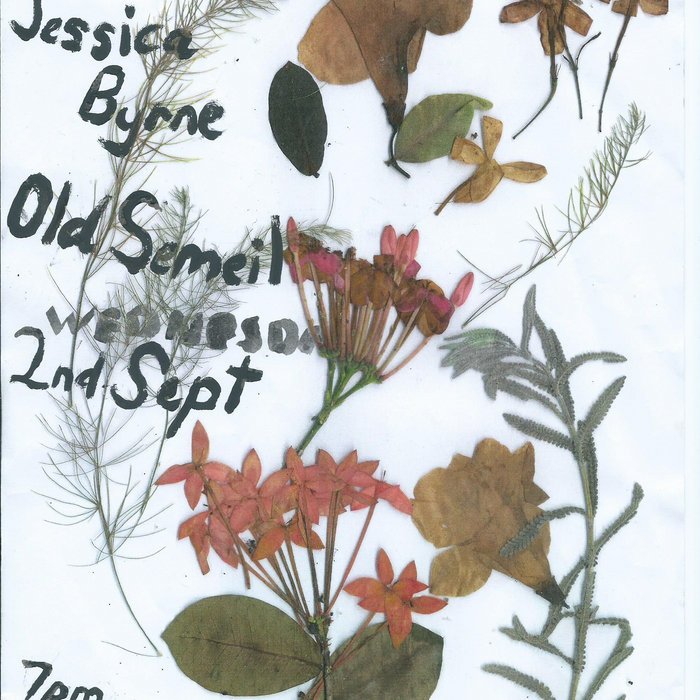 Jessica
Byrne
Old Semeil
WEDNESDA
2nd Sept
7pm